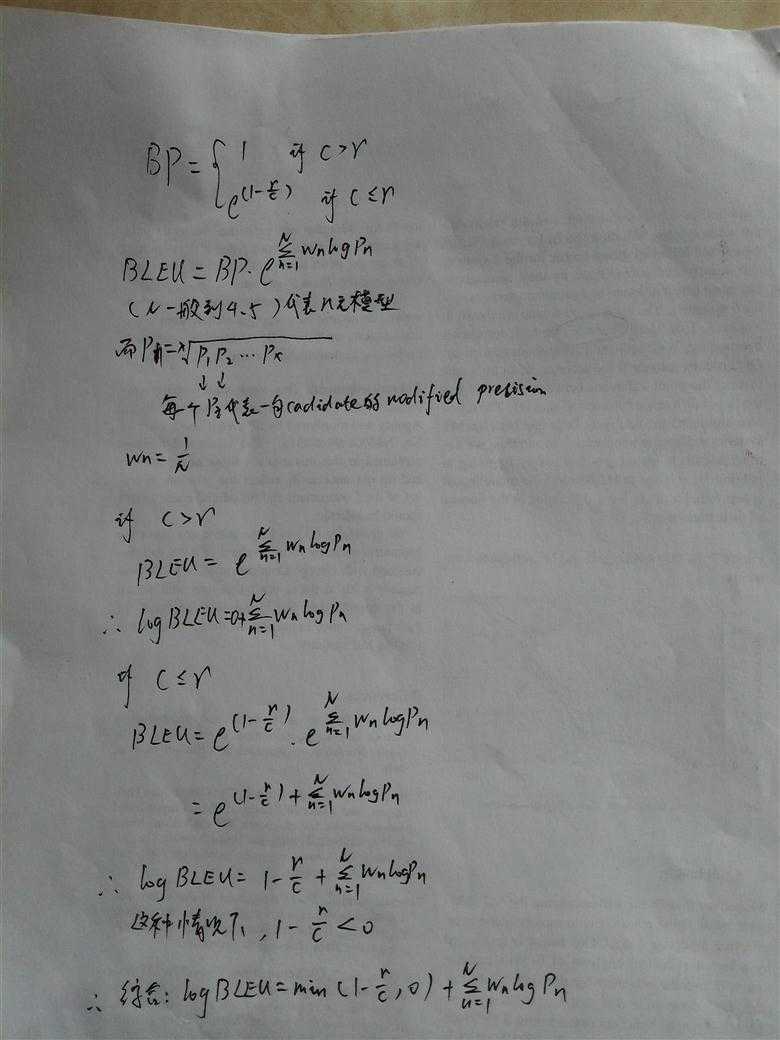 BP = { 1 if c>r
e^(1-r/c) if c≤r
BLEU = BP · e^{∑_{n=1}^{N} wn log Pn}
(N一般到4、5)代表n元模型
而Pn = ⁿ√(P₁P₂…Pₙ)
↓ ↓
每个P代表一句cadidate的modified precision
wn = 1/N
if c>r
BLEU = e^{∑_{n=1}^{N} wn log Pn}
∴ log BLEU = 0+∑_{n=1}^{N} wn log Pn
if c≤r
BLEU = e^(1-r/c) · e^{∑_{n=1}^{N} wn log Pn}
= e^{(1-r/c) + ∑_{n=1}^{N} wn log Pn}
∴ log BLEU = 1-r/c + ∑_{n=1}^{N} wn log Pn
这种情况下, 1-r/c <0
∴ 综合: log BLEU = min (1-r/c, 0) + ∑_{n=1}^{N} wn log Pn